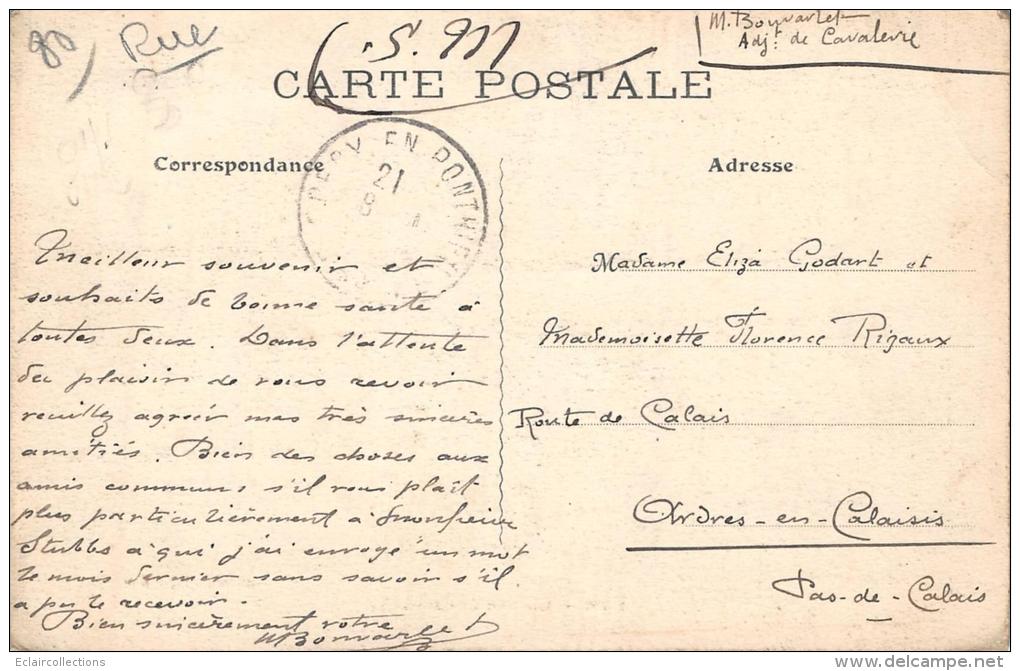 80
Rue
S. M
M. Bonvarlet
Adjt. de Cavalerie
CARTE POSTALE
Correspondance
Adresse
EN PONTHIEU
21
8
Meilleur souvenir et
souhaits de bonne santé à
toutes deux. Dans l'attente
du plaisir de vous revoir
veuillez agréer mes très sincères
amitiés. Bien des choses aux
amis communs s'il vous plaît
plus particulièrement à Monsieur
Stubbs à qui j'ai envoyé un mot
le mois dernier sans savoir s'il
a pu le recevoir.
Bien sincèrement votre
M Bonvarlet
Madame Eliza Godart et
Mademoiselle Florence Rigaux
Route de Calais
Ardres-en-Calaisis
Pas-de-Calais
Eclaircollections
www.delcampe.net